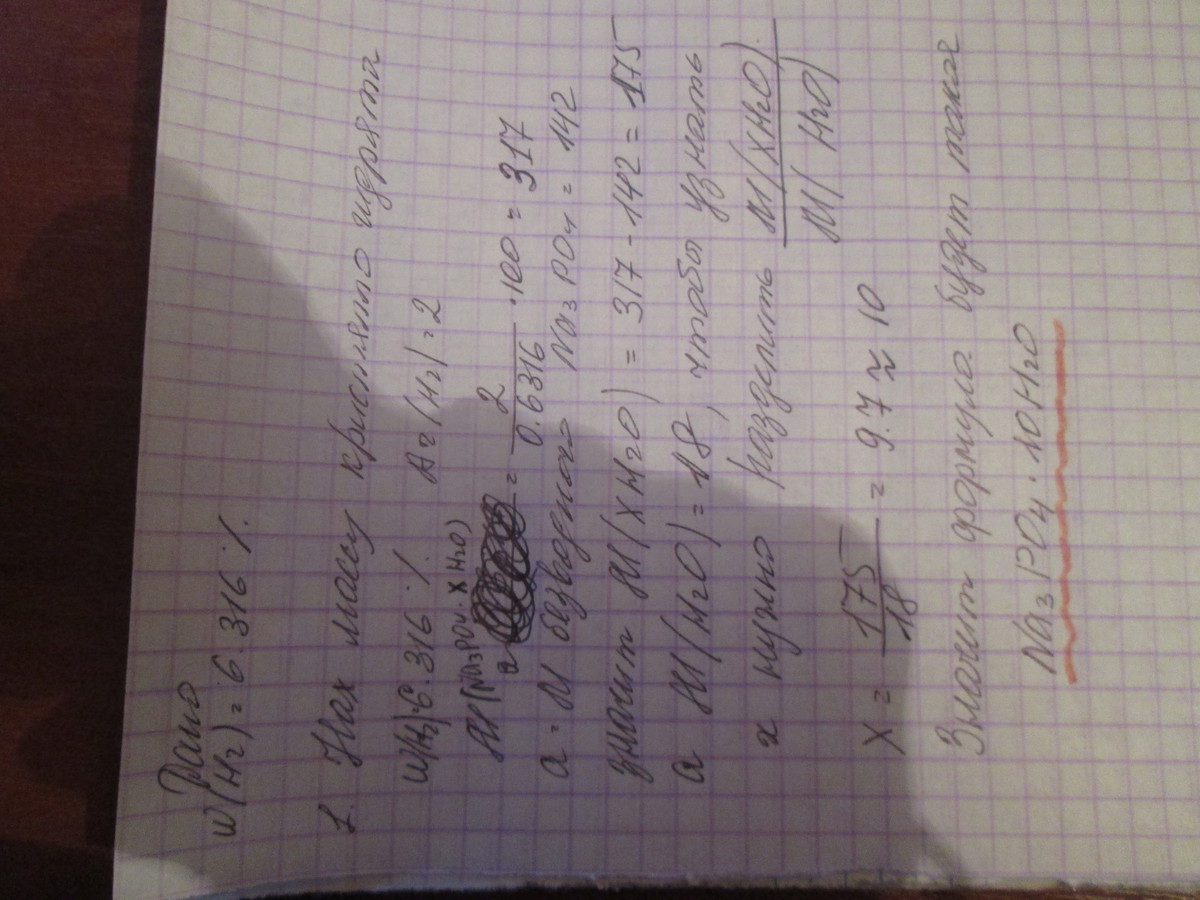 Дано
w(H2) = 6.316 %.
1. Нах массу кристалло гидрата
w(H2)=6.316 %. Ar(H2)=2
M(Na3PO4 · XH2O) = 2/0.6316 · 100 = 317
a = M безводного Na3PO4 = 142
значит M(XH2O) = 317-142 = 175
а M(H2O) = 18, чтобы узнать
x нужно разделить M(XH2O) / M(H2O)
X = 175/18 = 9.7 ≈ 10
Значит формула будет такая
Na3PO4 · 10H2O